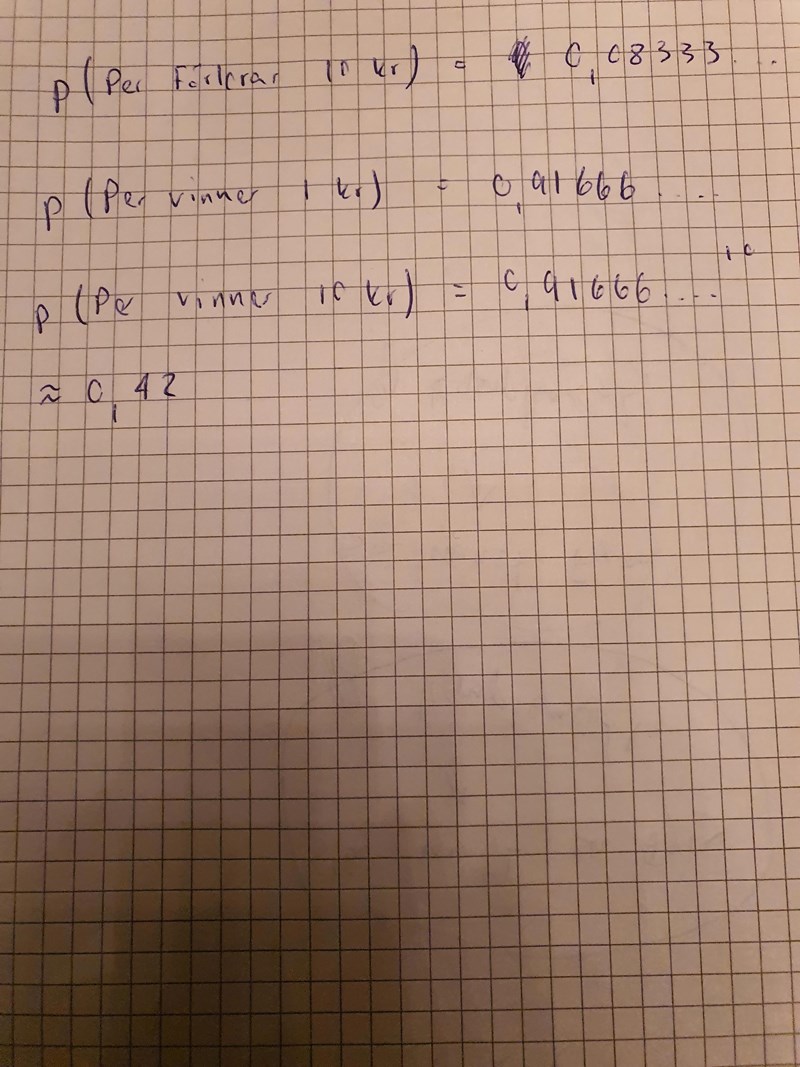 P(Per Förlorar 10 kr) = 0,08333...
P(Per vinner 1 kr) = 0,91666....
P(Per vinner 10 kr) = 0,91666....¹⁰
≈ 0,42